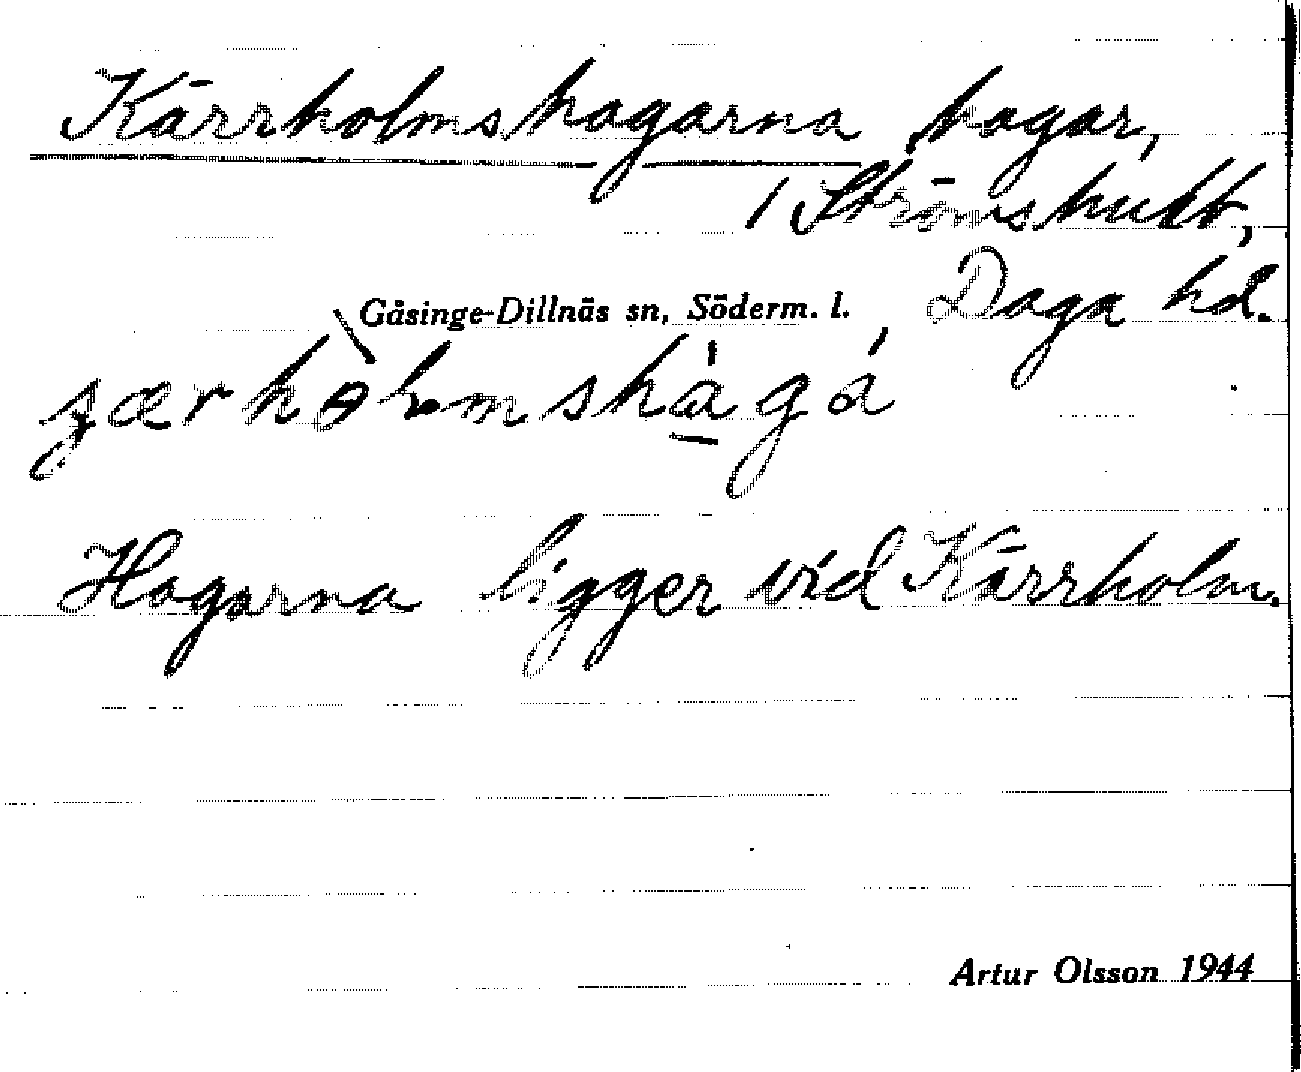 Kärrholmshagarna hagar,
/ Strömshult,
Gåsinge-Dillnäs sn, Söderm. l. Daga hd.
Hagarna ligger vid Kärrholm.
Artur Olsson 1944